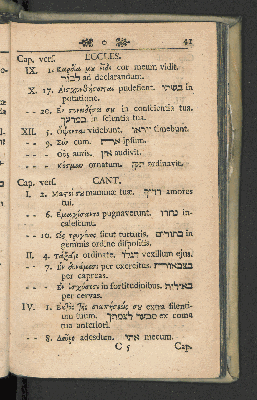 41
Cap. vers. ECCLES.
IX. 1. Καρδία με εἶδε cor meum vidit.
לבור ad declarandum.
X. 17. Αἰσχυνθήσονται pudefient. בשתי in
potatione.
-- 20. Ἐν συνειδήσει σȣ in conscientia tua.
במדעך in scientia tua.
XII. 5. ὄψονται videbunt. יראו timebunt.
-- 9. Σὺν cum. את ipsum.
-- Οὖς auris. אזן audivit.
-- κόσμιον ornatum. תקן ordinavit.
Cap. vers. CANT.
I. 2. Μαστοί σȣ mammæ tuæ. דדיך amores
tui.
-- 6. Ἐμαχέσαντο pugnaverunt. נחרו in-
caluerunt.
-- 10. Ὡς τρυγόνες sicut turturis. בתורים in
gemmis ordine dispositis.
II. 4. Τάξατε ordinate. דגלו vexillum ejus.
-- 7. Ἐν δυνάμεσι per exercitus. בצבאות
per capreas.
-- Ἐν ἰσχύσεσι in fortitudinibus. באילות
per cervas.
IV. 1. Ἐκτὸς τῆς σιωπήσεώς σȣ extra silenti-
um tuum. מבעד לצמתך ex coma
tua anteriori.
-- 8. Δεῦρο adesdum. אתי mecum.
C 5 Cap.